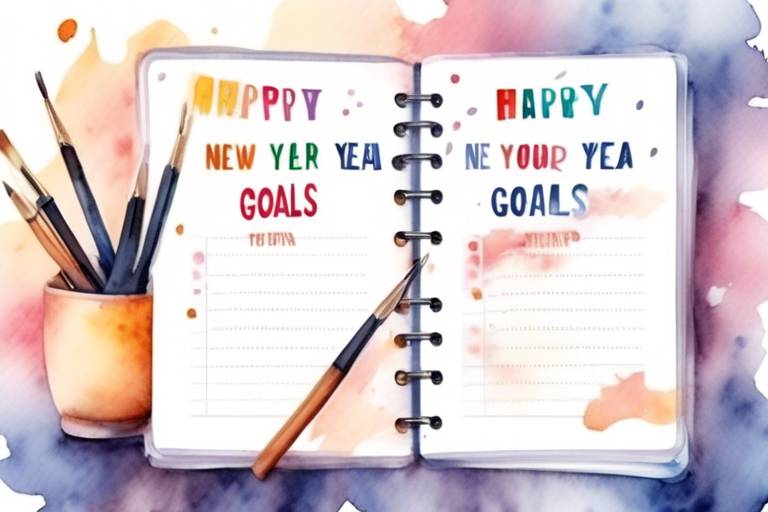 HAPPY
NEW YLR YEA
GOALS
HAPPY
NE YOUR YEA
GOALS